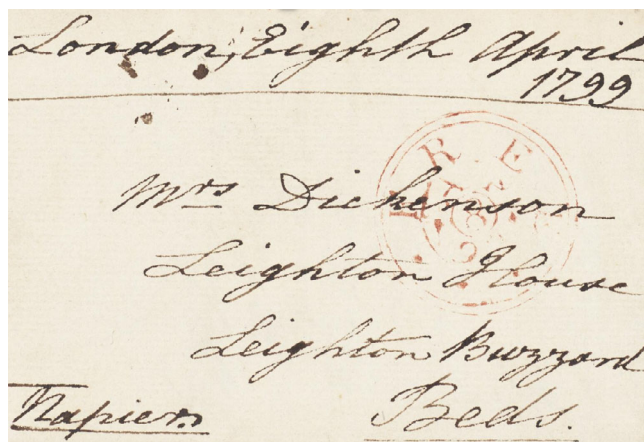 London, Eighth April
1799
Mrs Dickenson
Leighton House
Leighton Buzzard
Napier
Beds.